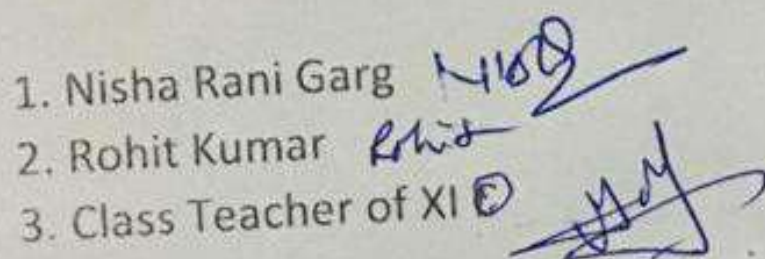 1. Nisha Rani Garg
2. Rohit Kumar Rohit
3. Class Teacher of XI ©